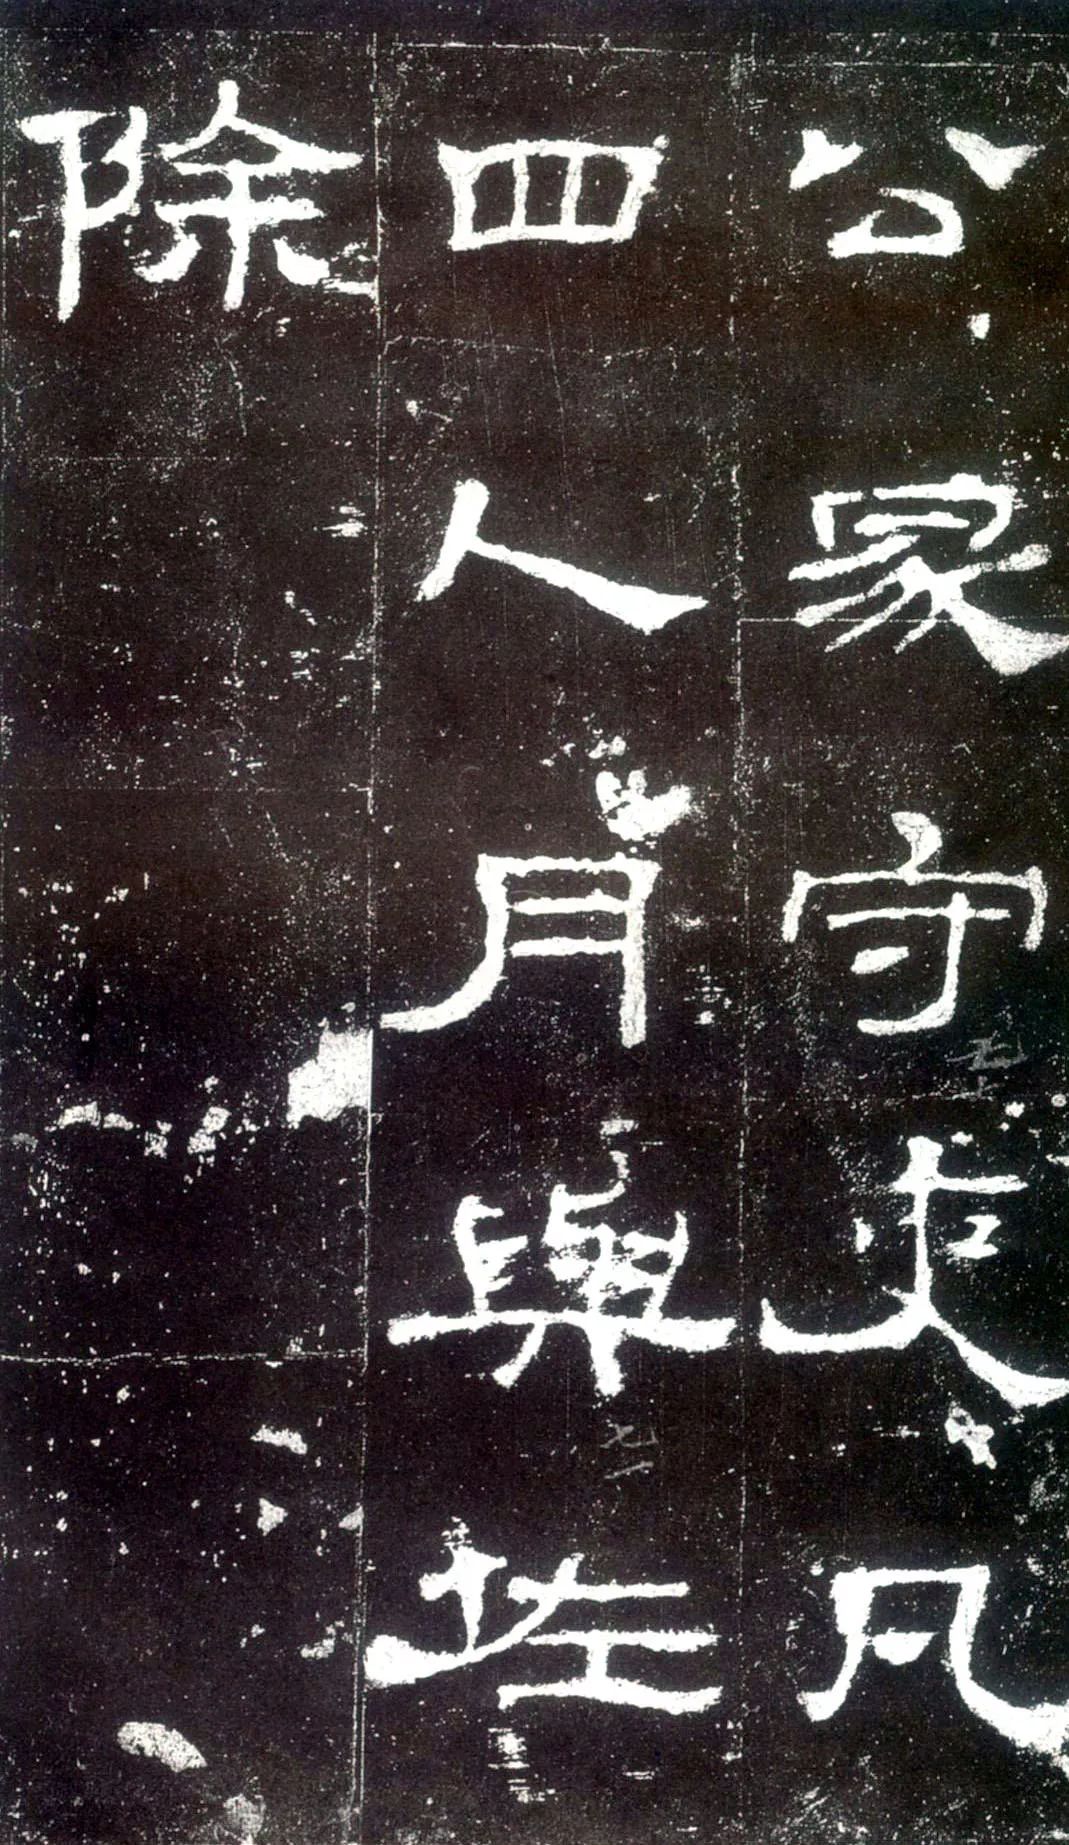 公冢守吏凡
四人月與佐
除